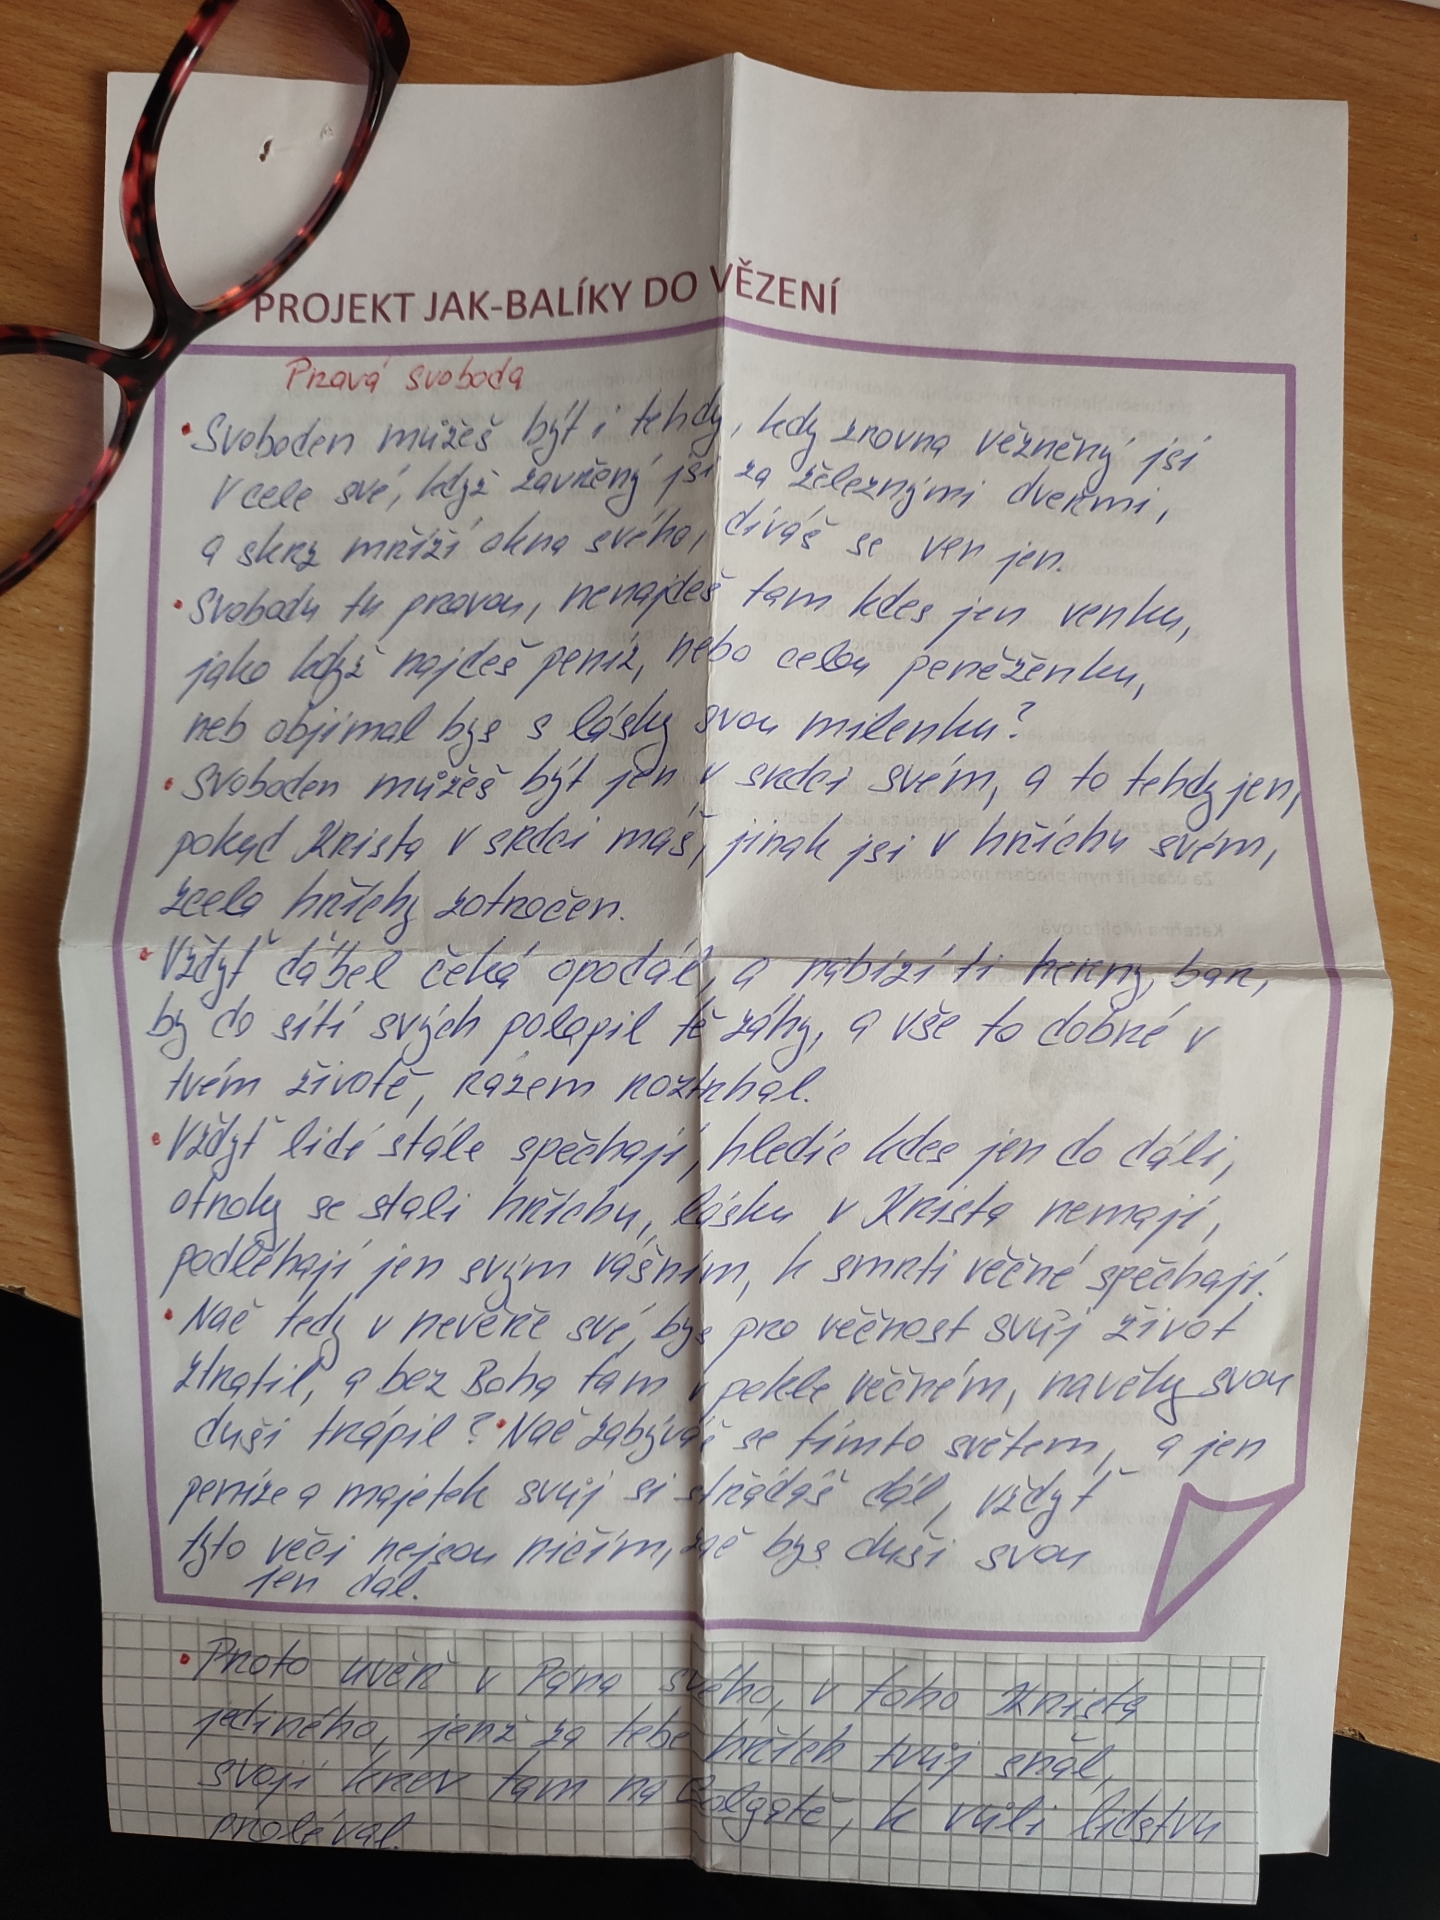 PROJEKT JAK-BALÍKY DO VĚZENÍ
Pravá svoboda
• Svoboden můžeš být i tehdy, kdy zrovna vězněný jsi
v cele své, když zavřený jsi za železnými dveřmi,
a skrz mříží okna svého, díváš se ven jen.
• Svobodu tu pravou, nenajdeš tam kdes jen venku,
jako když najdeš peníz, nebo celou peněženku,
neb objímal bys s lásky svou milenku?
• Svoboden můžeš být jen v srdci svém, a to tehdy jen,
pokud Krista v srdci máš, jinak jsi v hříchu svém,
zcela hříchy zotročen.
• Vždyť ďábel čeká opodál, a nabízí ti herny, bar,
by do sítí svých polapil tě záhy, a vše to dobré v
tvém životě, rázem roztrhal.
• Vždyť lidé stále spěchají, hledíc kdes jen do dáli,
otroky se stali hříchu, lásku v Krista nemají,
podléhají jen svým vášním, k smrti věčné spěchají.
• Nač tedy v nevěře své, bys pro věčnost svůj život
ztratil, a bez Boha tam v pekle věčném, navěky svou
duši trápil? • Nač zabýváš se tímto světem, a jen
peníze a majetek svůj si střádáš dál, vždyť
tyto věci nejsou ničím, zač bys duši svou
jen dal.
• Proto uvěř v Pána svého, v toho Krista
jediného, jenž za tebe hřích tvůj sňal,
svoji krev tam na Golgatě, k vůli lidstvu
proléval.